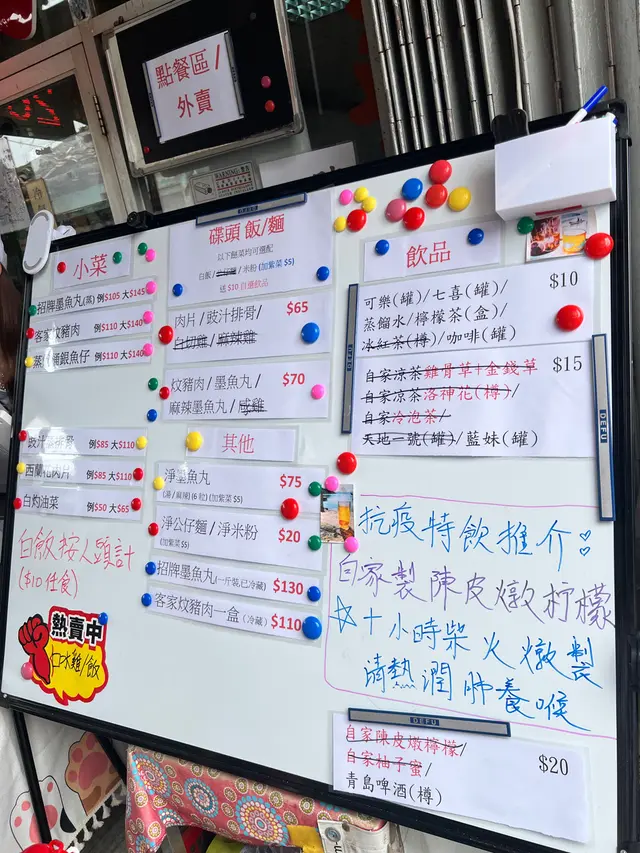 點餐區/
外賣
小菜
招牌墨魚丸(蒸) 例$105 大$145
客家炆豬肉 例$110 大$140
銀魚仔 例$110 大$140
豉汁排骨 例$85 大$110
西蘭花肉片 例$85 大$110
白灼油菜 例$50 大$65
白飯按人頭計
($10任食)
熱賣中
口水雞/飯
碟頭 飯/麵
以下餸菜均可選配
白飯/ /米粉 (加紫菜 $5)
送 $10 自選飲品
肉片/豉汁排骨/ $65
白切雞/麻辣雞
炆豬肉/墨魚丸/ $70
麻辣墨魚丸/咸雞
其他
淨墨魚丸 $75
(湯/麻辣)(6粒)(加紫菜 $5)
淨公仔麵/淨米粉 $20
(加紫菜 $5)
招牌墨魚丸(一斤裝已冷藏) $130
客家炆豬肉一盒(冷藏) $110
飲品
可樂(罐)/七喜(罐)/ $10
蒸餾水/檸檬茶(盒)/
冰紅茶(樽)/咖啡(罐)
自家涼茶雞骨草+金錢草 $15
自家涼茶洛神花(樽)/
自家冷泡茶/
天地一號(罐)/藍妹(罐)
DEFU
抗疫特飲推介:
自家製陳皮燉柠檬
十小時柴火燉製
清熱潤肺養喉
DEFU
自家陳皮燉檸檬/ $20
自家柚子蜜/
青島啤酒(樽)